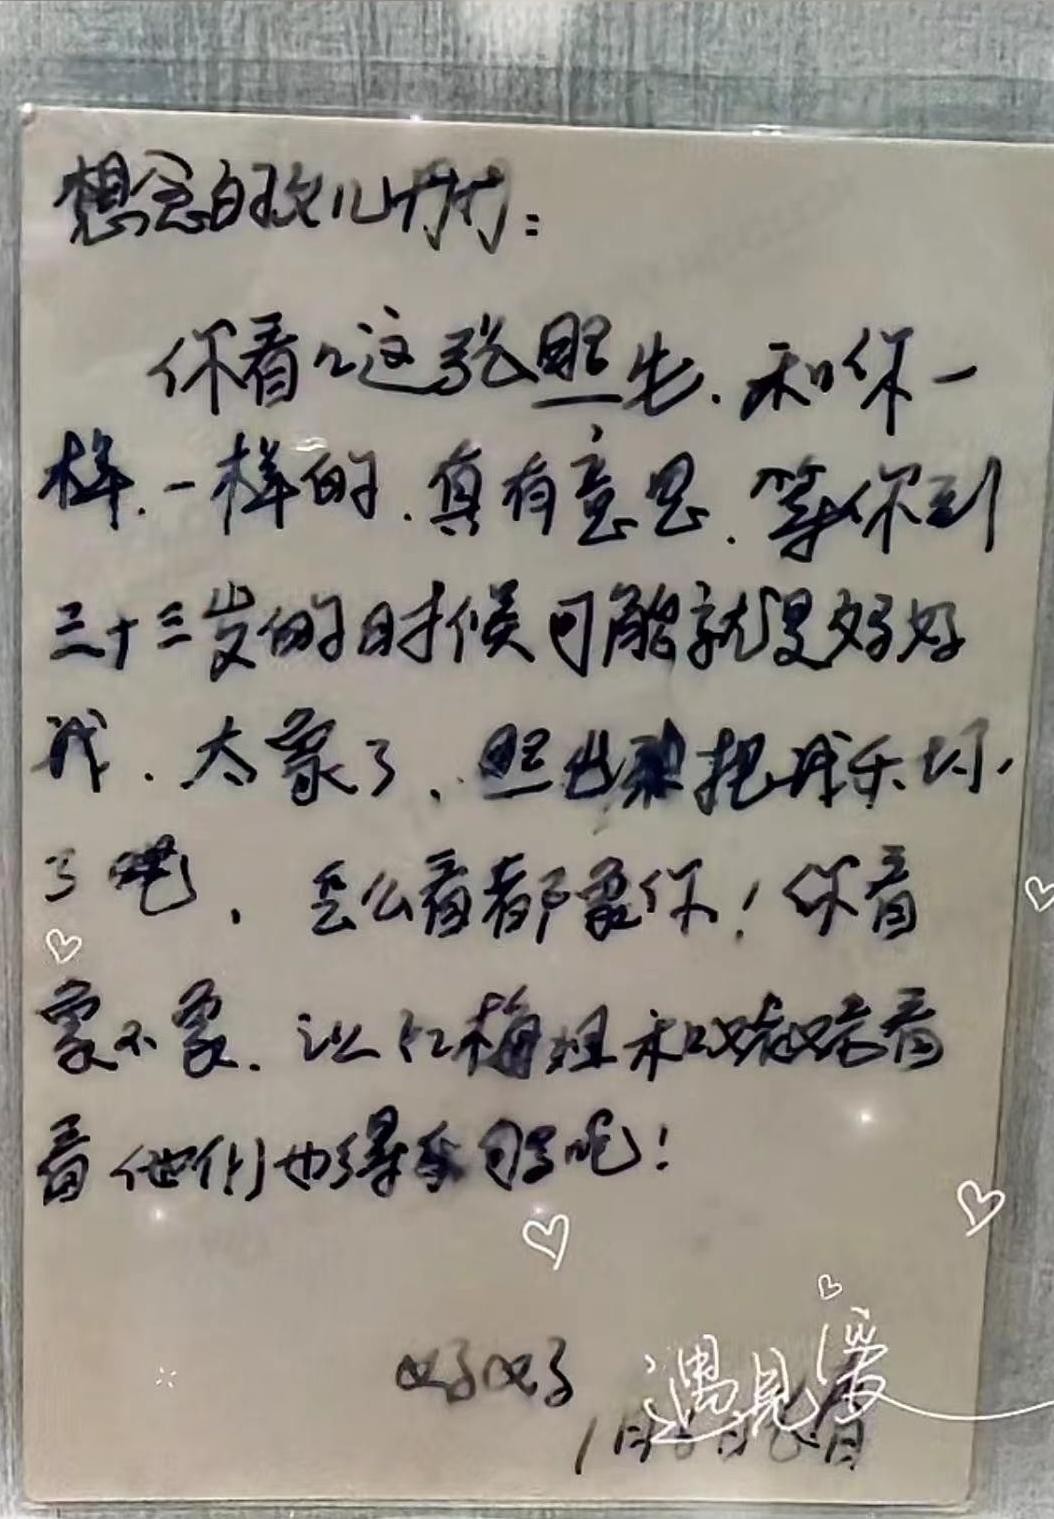 想念的孜儿
你看这张照片.和你一
样.一样的.真有意思.等你到
三十三岁的时候可能就是妈妈
我.太象了、照出来把我乐坏
了吧,怎么看都象你!你看
象不象.让红梅姐和晓晓看
看他们也得乐了吧!
妈妈
遇见爱
1月